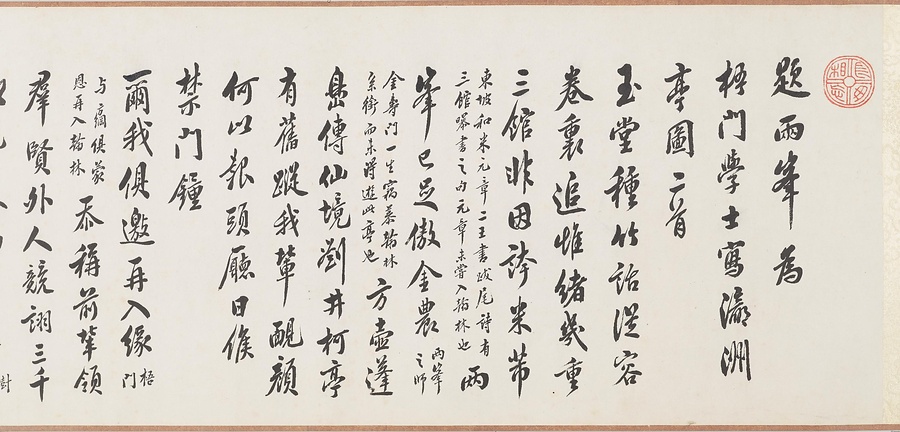 長毋相忘
題兩峯為
梧門學士寫瀛洲
亭圖二首
玉堂種竹話從容
卷裏追惟緒幾重
三館非因誇米芾
東坡和米元章二王書跋尾詩有
三館曝書之句元章未嘗入翰林也
兩
峯已足傲金農
兩峯
之師
金壽門一生竊慕翰林
系銜而未得遊此亭也
方壺蓬
島傳仙境劉井柯亭
有舊蹤我輩靦顏
何以報頭廳日俟
禁門鐘
爾我俱邀再入緣
梧
門
与俱蒙
恩再入翰林
忝稱前輩領
羣賢外人競詡三千
樹